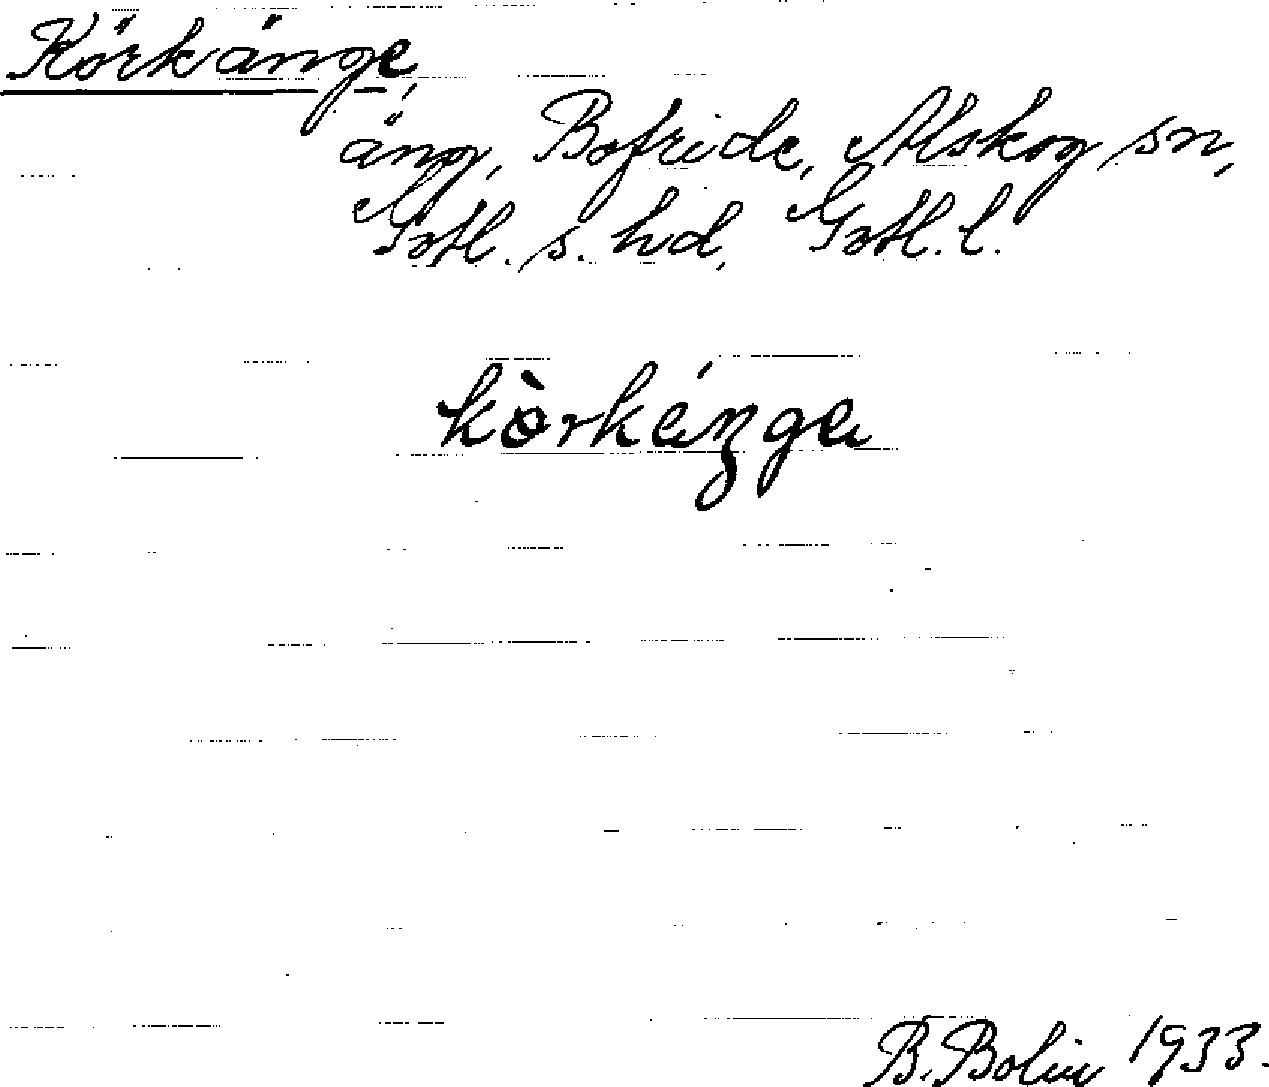 Körkänge,
äng, Bofride, Alskog sn,
Gotl. s. hd, Gotl. l.
kòrkáŋga
B. Bolin 1933.